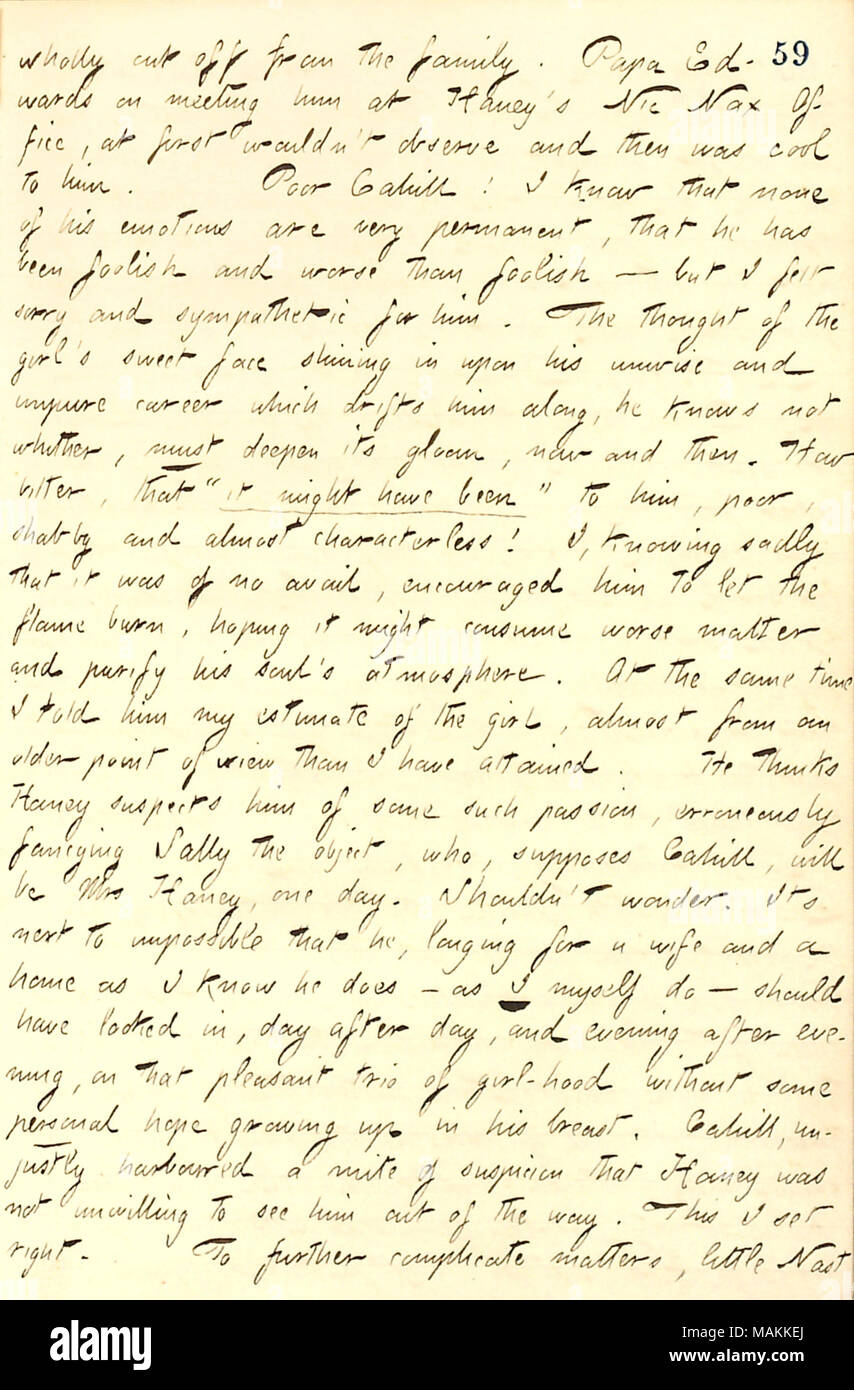 wholly cut off from the family. Papa Ed- 59
wards on meeting him at Haney's Nic Nax Of-
fice, at first wouldn't observe and then was cool
to him. Poor Cahill! I know that none
of his emotions are very permanent, that he has
been foolish and worse than foolish — but I felt
sorry and sympathetic for him. The thought of the
girl's sweet face shining in upon his unwise and
unpure career which drifts him along, he knows not
whither, must deepen its gloom, now and then. How
bitter, that "it might have been" to him, poor,
shabby and almost characterless! I, knowing sadly
that it was of no avail, encouraged him to let the
flame burn, hoping it might consume worse matter
and purify his soul's atmosphere. At the same time
I told him my estimate of the girl, almost from an
older point of view than I have attained. He thinks
Haney suspects him of some such passion, erroneously
fancying Sally the object, who, supposes Cahill, will
be Mrs Haney, one day. Shouldn't wonder. It's
next to impossible that he, longing for a wife and a
home as I know he does — as I myself do — should
have looked in, day after day, and evening after eve-
ning, on that pleasant trio of girl-hood without some
personal hope growing up in his breast. Cahill, un-
justly harboured a mite of suspicion that Haney was
not unwilling to see him out of the way. This I set
right. To further complicate matters, little Nast
alamy
Image ID: MAKKEJ
www.alamy.com